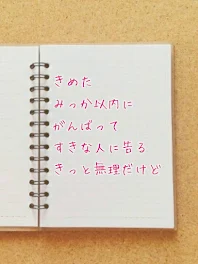 きめた
みっか以内に
がんばって
すきな人に告る
きっと無理だけど